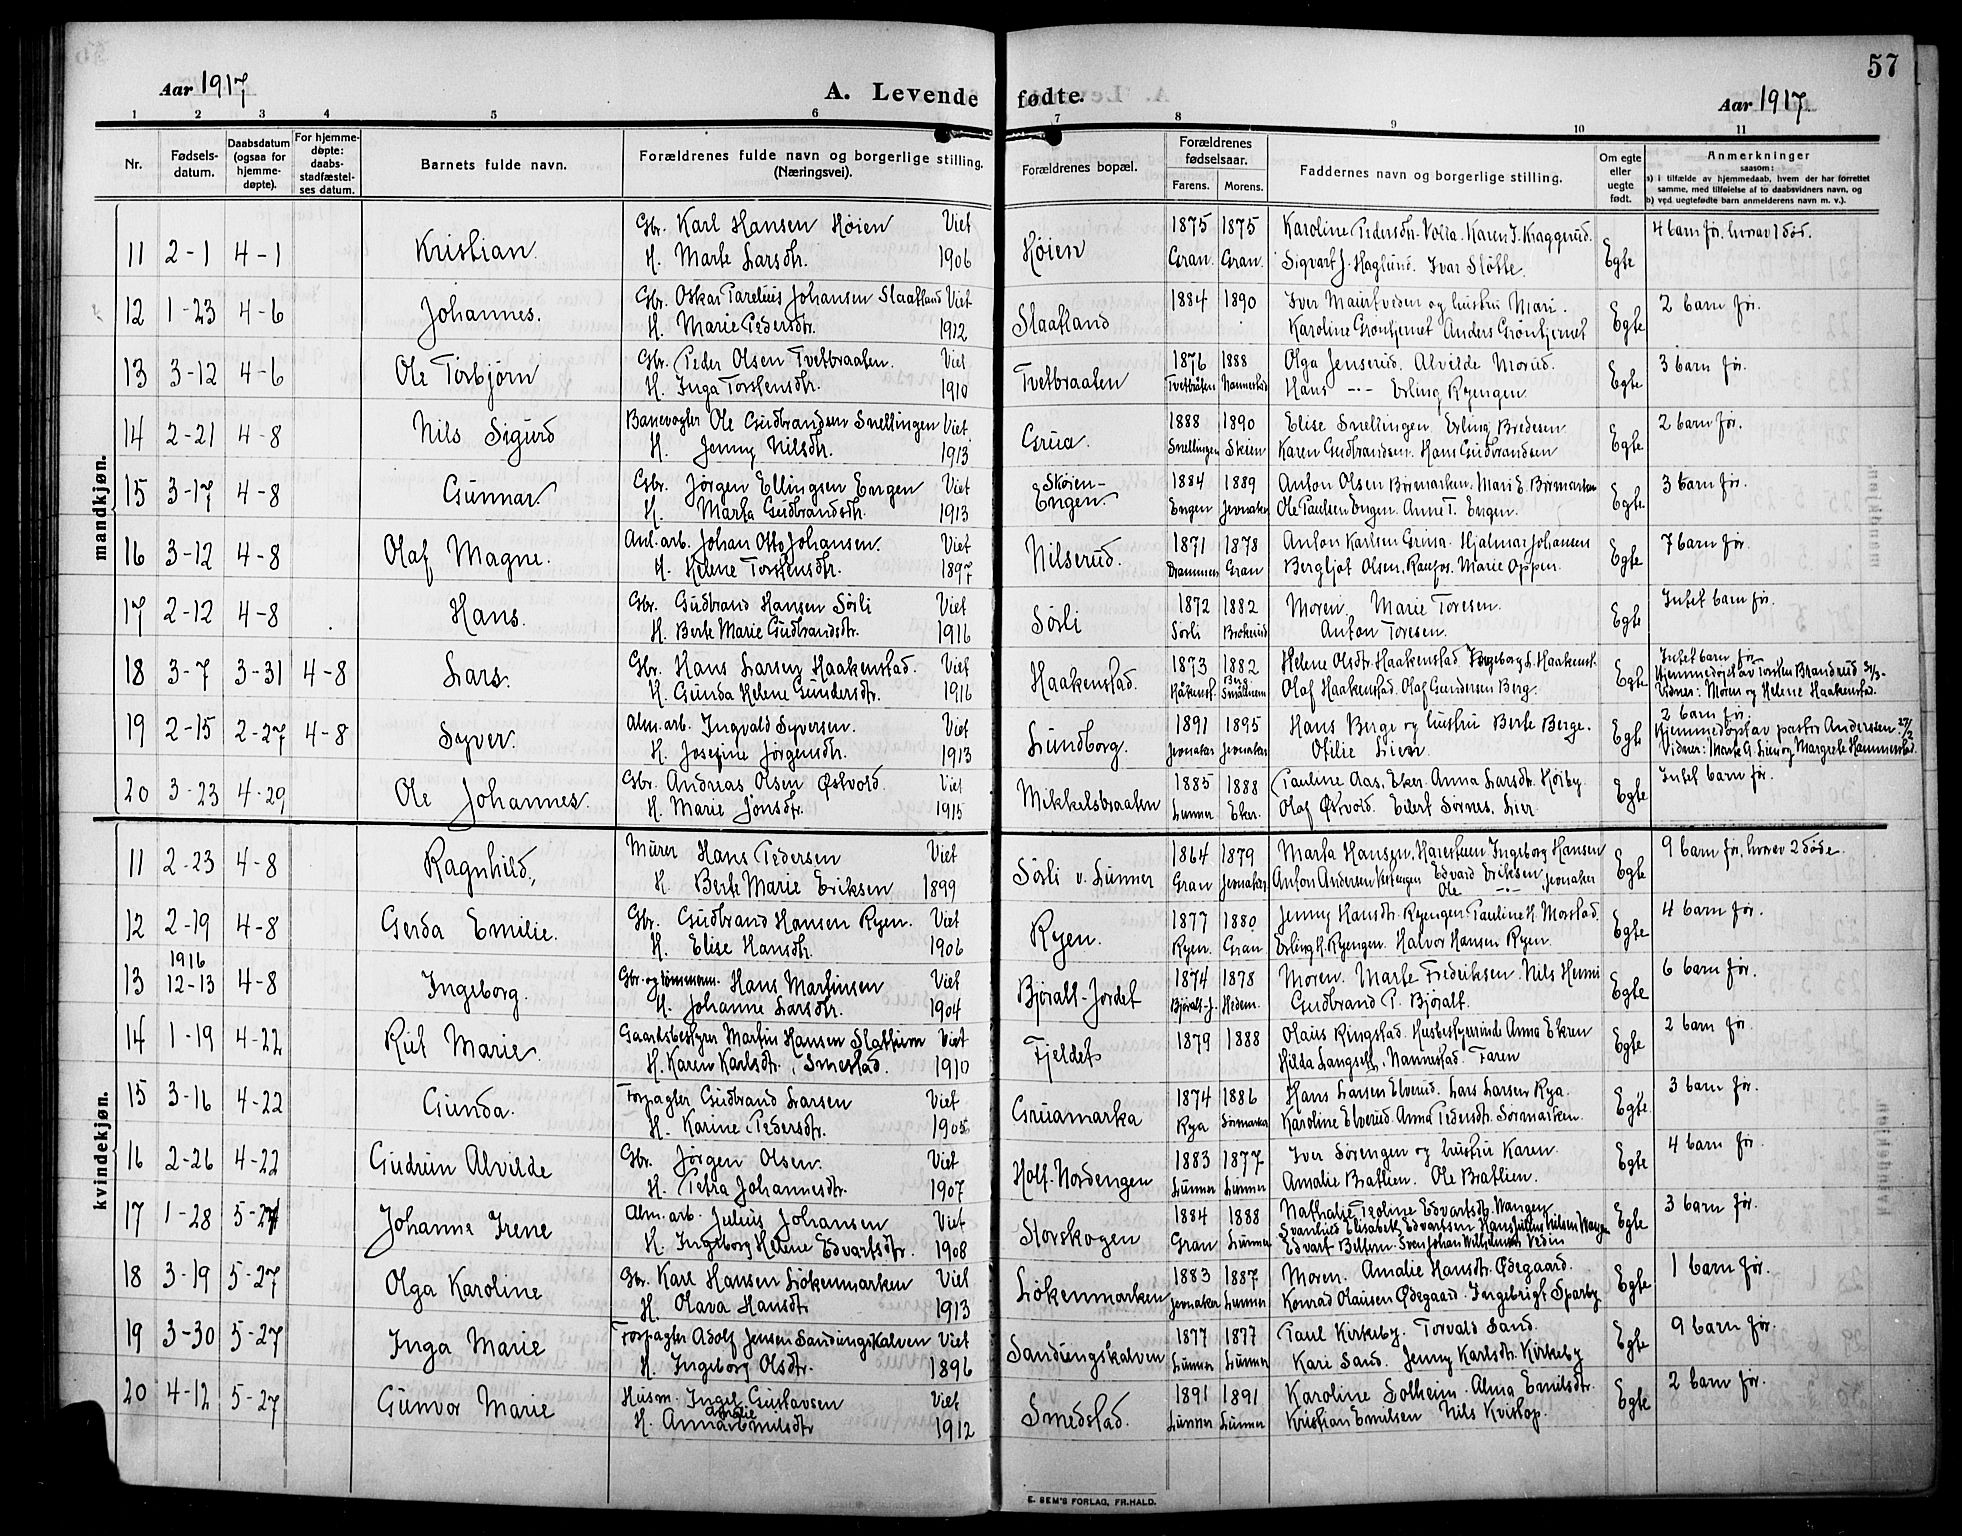 57
Aar 1917
A. Levende fødte.
Aar 1917.
1 2 3 4 5 6 7 8 9 10 11
Nr.
Fødsels-
datum.
Daabsdatum
(ogsaa for
hjemme-
døpte).
For hjemme-
døpte:
daabs-
stadfæstel-
ses datum.
Barnets fulde navn.
Forældrenes fulde navn og borgerlige stilling.
(Næringsvei).
Forældrenes bopæl.
Forældrenes
fødselsaar.
Farens. Morens.
Faddernes navn og borgerlige stilling.
Om egte
eller
uegte
født.
Anmerkninger
saasom:
a) i tilfælde av hjemmedaab, hvem der har forrettet
samme, med tilføielse af to daabsvidners navn, og
b) ved uegtefødte barn anmelderens navn m. v.).
mandkjøn.
Gbr. Karl Hansen Høien Viet 1875 1875 Karoline Pedersdtr. Volla. Karen J. Kraggerud. 4 barn før, hvorav 1 død.
11 2-1 4-1 Kristian. H. Marte Larsdtr. 1906 Høien Gran. Gran. Sigvart J. Haglund. Ivar Sløtte. Egte
Gbr. Oskar Parelius Johansen Slaatland Viet 1884 1890 Iver og hustru Mari. 2 barn før.
12 1-23 4-6 Johannes. H. Marie Pedersdtr. 1912 Slaatland Karoline Grøntjernet Anders Grøntjernet Egte
Gbr. Peder Olsen Tvetbraaten. Viet 1876 1888 Olga Jenserud. Alvilde Morud. 3 barn før.
13 3-12 4-6 Ole Torbjørn H. Inga Torstensdtr. 1910 Tvetbraaten Tvetbråten Nannestad Hans -"- Erling Ryengen. Egte
Banevogter Ole Gudbrandsen Snellingen Viet. 1888 1890 Elise Snellingen. Erling Bredesen. 2 barn før.
14 2-21 4-8 Nils Sigurd H. Jenny Nilsdtr. 1913 Grua. Snellingen Skien Karen Gudbrandsen. Hans Gudbrandsen Egte
Gbr. Jørgen Ellingsen Engen Viet Skøien- 1884 1889 Anton Olsen Børmarken. Mari E. Børmarken 3 barn før.
15 3-17 4-8 Gunnar H. Marta Gudbrandsdtr. 1913 Engen. Engen Jevnaker Ole Paulsen Engen. Anne T. Engen. Egte
Anl. arb. Johan Otto Johansen. Viet 1871 1878 Anton Karlsen Grina. Hjalmar Johansen 7 barn før.
16 3-12 4-8 Olaf Magne. H. Helene Torstensdtr. 1897 Nilserud. Drammen Gran Bergljot Olsen, Raufos. Marie Oppen. Egte
Gbr. Gudbrand Hansen Sørli Viet 1872 1882 Moren. Marie Toresen. Intet barn før.
17 2-12 4-8 Hans. H. Berte Marie Gudbrandsdtr. 1916 Sørli Sørli Brokerud Anton Toresen. Egte
Gbr. Hans Larsen Haakenstad. Viet 1873 1882 Helene Olsdtr. Haakenstad. Ingeborg L. Haakenst. Intet barn før.
18 3-7 3-31 4-8 Lars. H. Gunda Helene Gundersdtr. 1916 Haakenstad. Håkenst. Berg. Olaf Haakenstad. Olaf Gundersen Berg. Egte Hjemmedøpt av Torsten Brandrud 31/3. Vidner: Moren og Helene Haakenstad.
Alm. arb. Ingvald Syversen. Viet 1891 1895 Hans Berge og hustru Berte Berge. 2 barn før.
19 2-15 2-27 4-8 Syver. H. Josefine Jørgensdtr. 1913 Lundborg. Jevnaker Jevnaker Otilie Lien. Egte Hjemmedøpt av pastor Andersen 27/2 Vidner: Marte G. Lien og Margrete Hammerstad.
Gbr. Andreas Olsen Østvold. Viet 1885 1888 Pauline Aas, Eker. Anna Larsdtr. Høiby. Intet barn før.
20 3-23 4-29 Ole Johannes. H. Marie Jonsdtr. 1915 Mikkelsbraaten Lunner Eker. Olaf Østvold. Edert Sørnes, Lier Egte
kvindekjøn.
Murer Hans Pedersen Viet 1864 1879 Marta Hansen, Harestuen Ingeborg Hansen 9 barn før, hvorav 2 døde.
11 2-23 4-8 Ragnhild. H. Berte Marie Eriksen 1899 Sørli v. Lunner Gran Jevnaker Anton Andersen Edvard Eriksen Jevnaker Ole -"- Egte
Gbr. Gudbrand Hansen Ryen. Viet 1877 1880 Jenny Hansdtr. Ryengen Pauline H. Morstad. 4 barn før.
12 2-19 4-8 Gerda Emilie. H. Elise Hansdtr. 1906 Ryen. Ryen. Gran Erling H. Ryengen. Halvor Hansen Ryen. Egte
1916 Gbr. og tømmerm. Hans Martinsen Viet 1874 1878 Moren. Marte Fredriksen. Nils Henni 6 barn før.
13 12-13 4-8 Ingeborg. H. Johanne Larsdtr. 1904 Bjøralt-Jordet Bjøralt-J. Hedem. Gudbrand P. Bjøralt. Egte
Gaardsbestyrer Martin Hansen Slattum Viet 1879 1888 Olaus Ringstad. Husbestyrerinde Anna Ekren 2 barn før.
14 1-19 4-22 Rut Marie. H. Karen Karlsdtr. Smestad. 1910 Fjeldet Hilda Langseth, Nannestad. Faren Egte
Forpagter Gudbrand Larsen Viet 1874 1886 Hans Larsen Elverud. Lars Larsen Rya. 3 barn før.
15 3-16 4-22 Gunda. H. Karine Pedersdtr. 1905 Gruamarka Rya Sørmarka Karoline Elverud. Anna Pedersdtr. Sørmarken. Egte
Gbr. Jørgen Olsen. Viet 1883 1877 Iver Sørengen og hustru Karen. 4 barn før.
16 2-26 4-22 Gudrun Alvilde H. Petra Johannesdtr. 1907 Holt-Nordengen Lunner Lunner Amalie Bratlien. Ole Bratlien. Egte
Alm. arb. Julius Johansen Viet 1884 1888 Nathalie Teoline Edvartsdtr. Wangen 3 barn før.
17 1-28 5-27 Johanne Irene H. Ingeborg Helene Edvartsdtr. 1908 Storskogen Gran Lunner Svanhild Elisabeth Edvartsen Hans Julius Nilsen Wangen Edvart Bellern. Sven Johan Wilhelmsen Vedin Egte
Gbr. Karl Hansen Løkenmarken Viet 1883 1887 Moren. Amalie Hansdtr. Ødegaard. 1 barn før.
18 3-19 5-27 Olga Karoline H. Olava Hansdtr 1913 Løkenmarken Jevnaker Lunner Konrad Olausen Ødegaard. Ingebrigt Sparby Egte
Forpagter Adolf Jensen Sandungskalven Viet 1877 1877 Paul Kirkeby. Torvald Sand. 9 barn før.
19 3-30 5-27 Inga Marie H. Ingeborg Olsdtr. 1896 Sandungskalven Lunner Lunner Kari Sand. Jenny Karlsdtr. Kirkeby Egte
Husm. Ingel Gustavsen Viet 1891 1891 Karoline Solheim. Alma Emilsdtr. 2 barn før.
20 4-12 5-27 Gunvor Marie H. Anna Amalie Emilsdtr 1912 Smedstad. Lunner Lunner Kristian Emilsen Nils Kvistop. Egte
E. SEM'S FORLAG, FR.HALD.